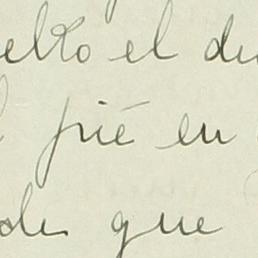 elto el du
pié en
de que